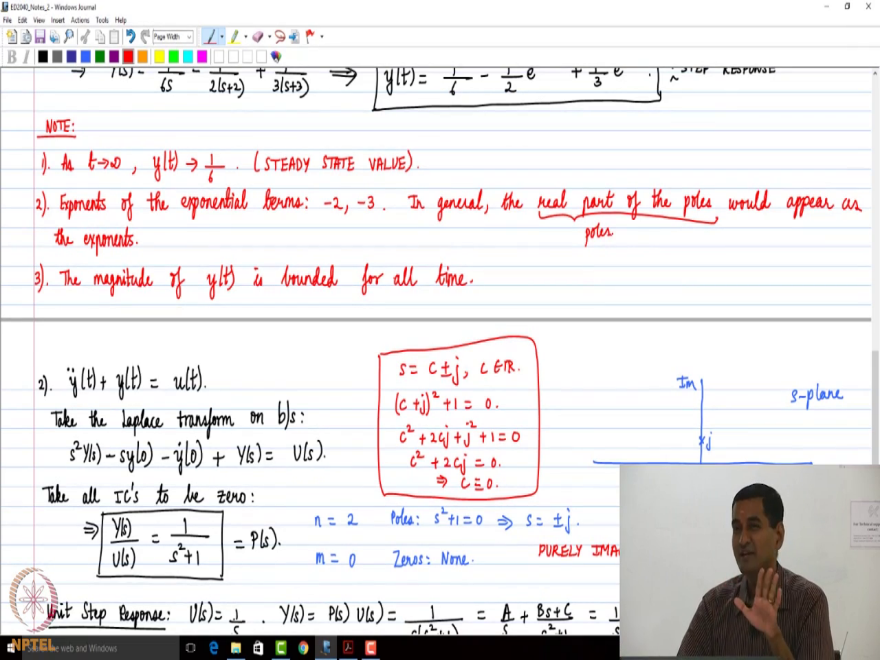 ED2040_Notes_2 - Windows Journal
File Edit View Insert Actions Tools Help
Page Width
B I
6s 2(s+2) 3(s+3) ⇒ y(t) = 1/6 - 1/2 e + 1/3 e . : STEP RESPONSE
NOTE:
1). As t→∞, y(t) → 1/6 . (STEADY STATE VALUE).
2). Exponents of the exponential terms: -2, -3. In general, the real part of the poles would appear as
poles
the exponents.
3). The magnitude of y(t) is bounded for all time.
2). ÿ(t) + y(t) = u(t).
Take the Laplace transform on b/s:
s²Y(s) - sy(0) - ẏ(0) + Y(s) = U(s).
Take all IC's to be zero:
⇒ Y(s)/U(s) = 1/(s²+1) = P(s).
s = c ± j, c ∈ ℝ.
(c + j)² + 1 = 0.
c² + 2cj + j² + 1 = 0
c² + 2cj = 0.
⇒ c = 0.
Im
s-plane
j
n = 2 Poles: s²+1 = 0 ⇒ s = ± j.
m = 0 Zeros: None.
PURELY IMA
Unit Step Response: U(s) = 1/s . Y(s) = P(s) U(s) = 1/(s(s²+1)) = A/s + (Bs+C)/(s²+1) = 1
NPTEL
the web and Windows